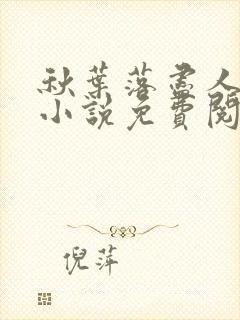 秋葉落盡人
小說免費閱
倪萍